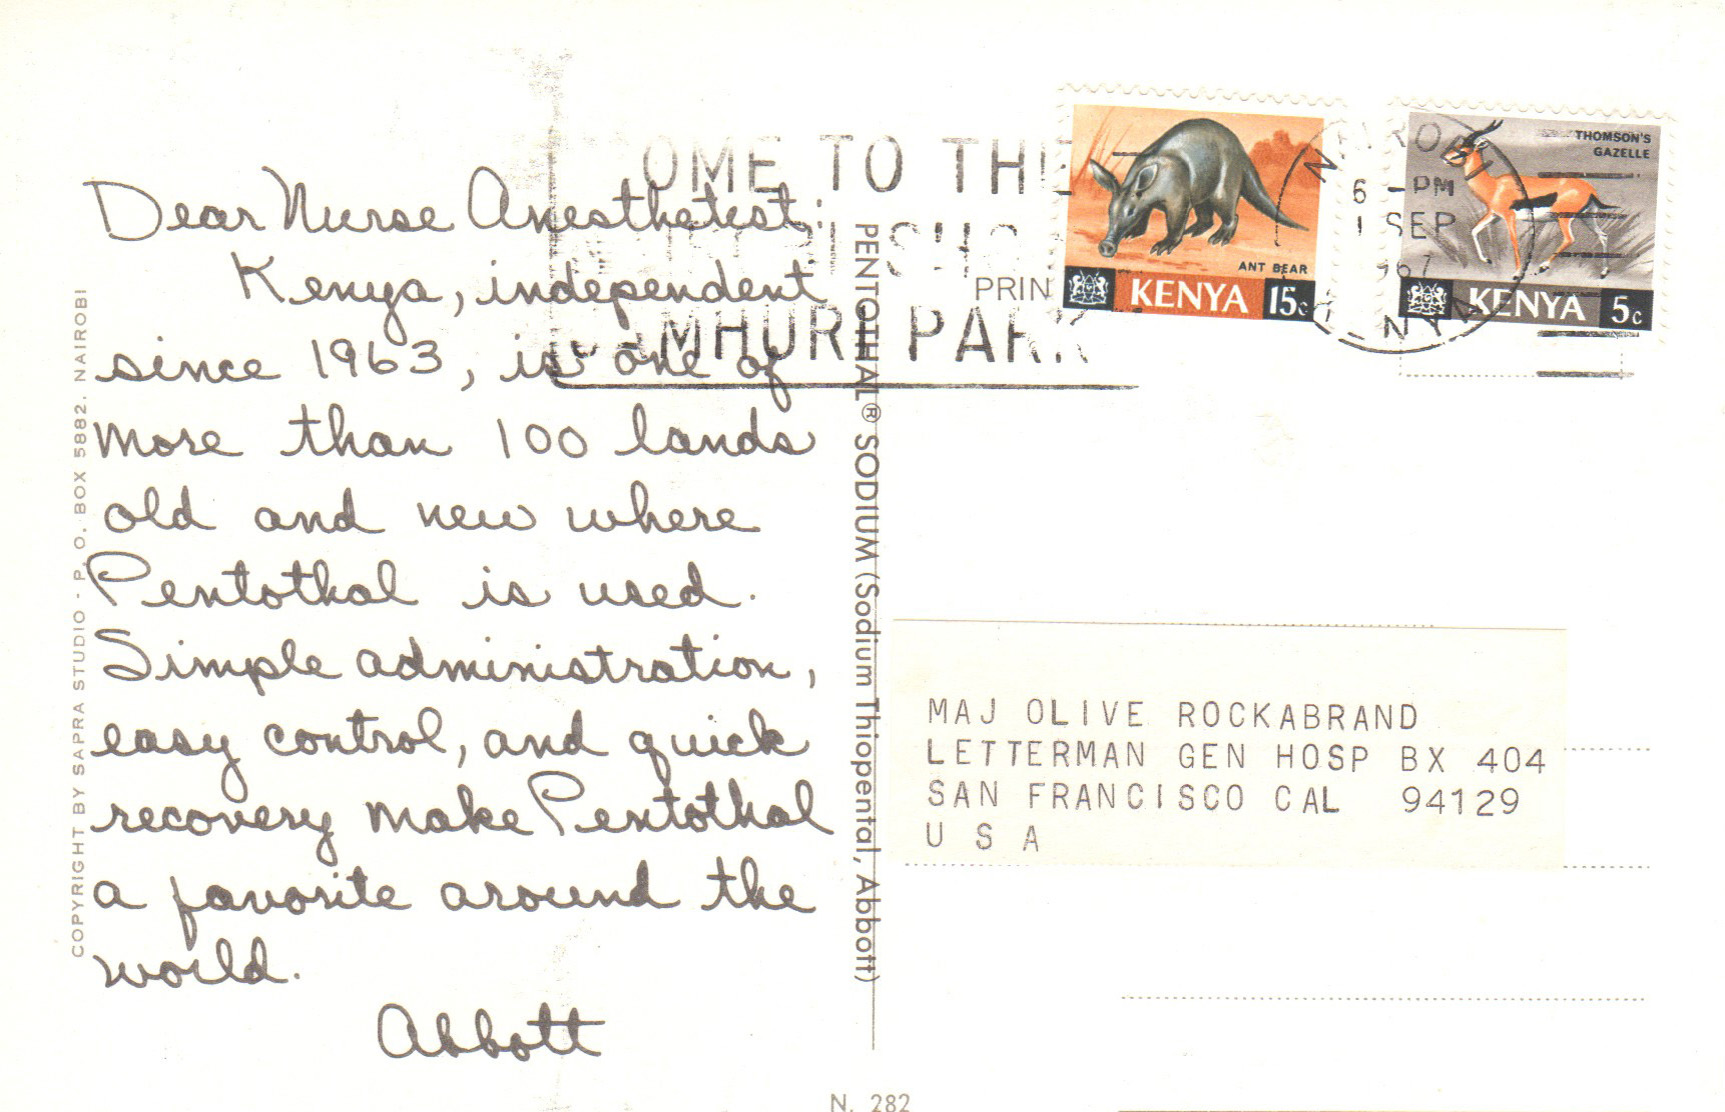 Dear Nurse Anesthetist:
Kenya, independent
since 1963, is one of
more than 100 lands
old and new where
Pentothal is used.
Simple administration,
easy control, and quick
recovery make Pentothal
a favorite around the
world.
Abbott
COPYRIGHT BY SAPRA STUDIO - P. O. BOX 5882, NAIROBI
PENTOTHAL® SODIUM (Sodium Thiopental, Abbott)
OME TO THE
PRIN
PARK
ANT BEAR
KENYA 15c
NAIROBI
6 - PM
1 SEP
THOMSON'S
GAZELLE
KENYA 5c
MAJ OLIVE ROCKABRAND
LETTERMAN GEN HOSP BX 404
SAN FRANCISCO CAL 94129
U S A
N. 282